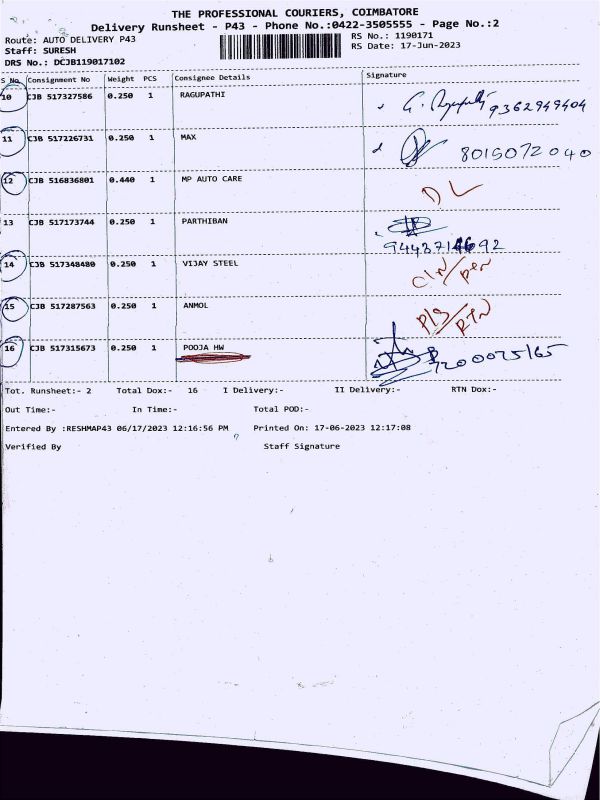 THE PROFESSIONAL COURIERS, COIMBATORE
Delivery Runsheet - P43 - Phone No.:0422-3505555 - Page No.:2
Route: AUTO DELIVERY P43 RS No.: 1190171
Staff: SURESH RS Date: 17-Jun-2023
DRS No.: DCJB119017102
S No. Consignment No Weight PCS Consignee Details Signature
10 CJB 517327586 0.250 1 RAGUPATHI 9362949404
11 CJB 517226731 0.250 1 MAX 8015072040
12 CJB 516836801 0.440 1 MP AUTO CARE DL
13 CJB 517173744 0.250 1 PARTHIBAN
14 CJB 517348480 0.250 1 VIJAY STEEL
15 CJB 517287563 0.250 1 ANMOL
16 CJB 517315673 0.250 1 POOJA HW
Tot. Runsheet:- 2 Total Dox:- 16 I Delivery:- II Delivery:- RTN Dox:-
Out Time:- In Time:- Total POD:-
Entered By :RESHMAP43 06/17/2023 12:16:56 PM Printed On: 17-06-2023 12:17:08
Verified By Staff Signature